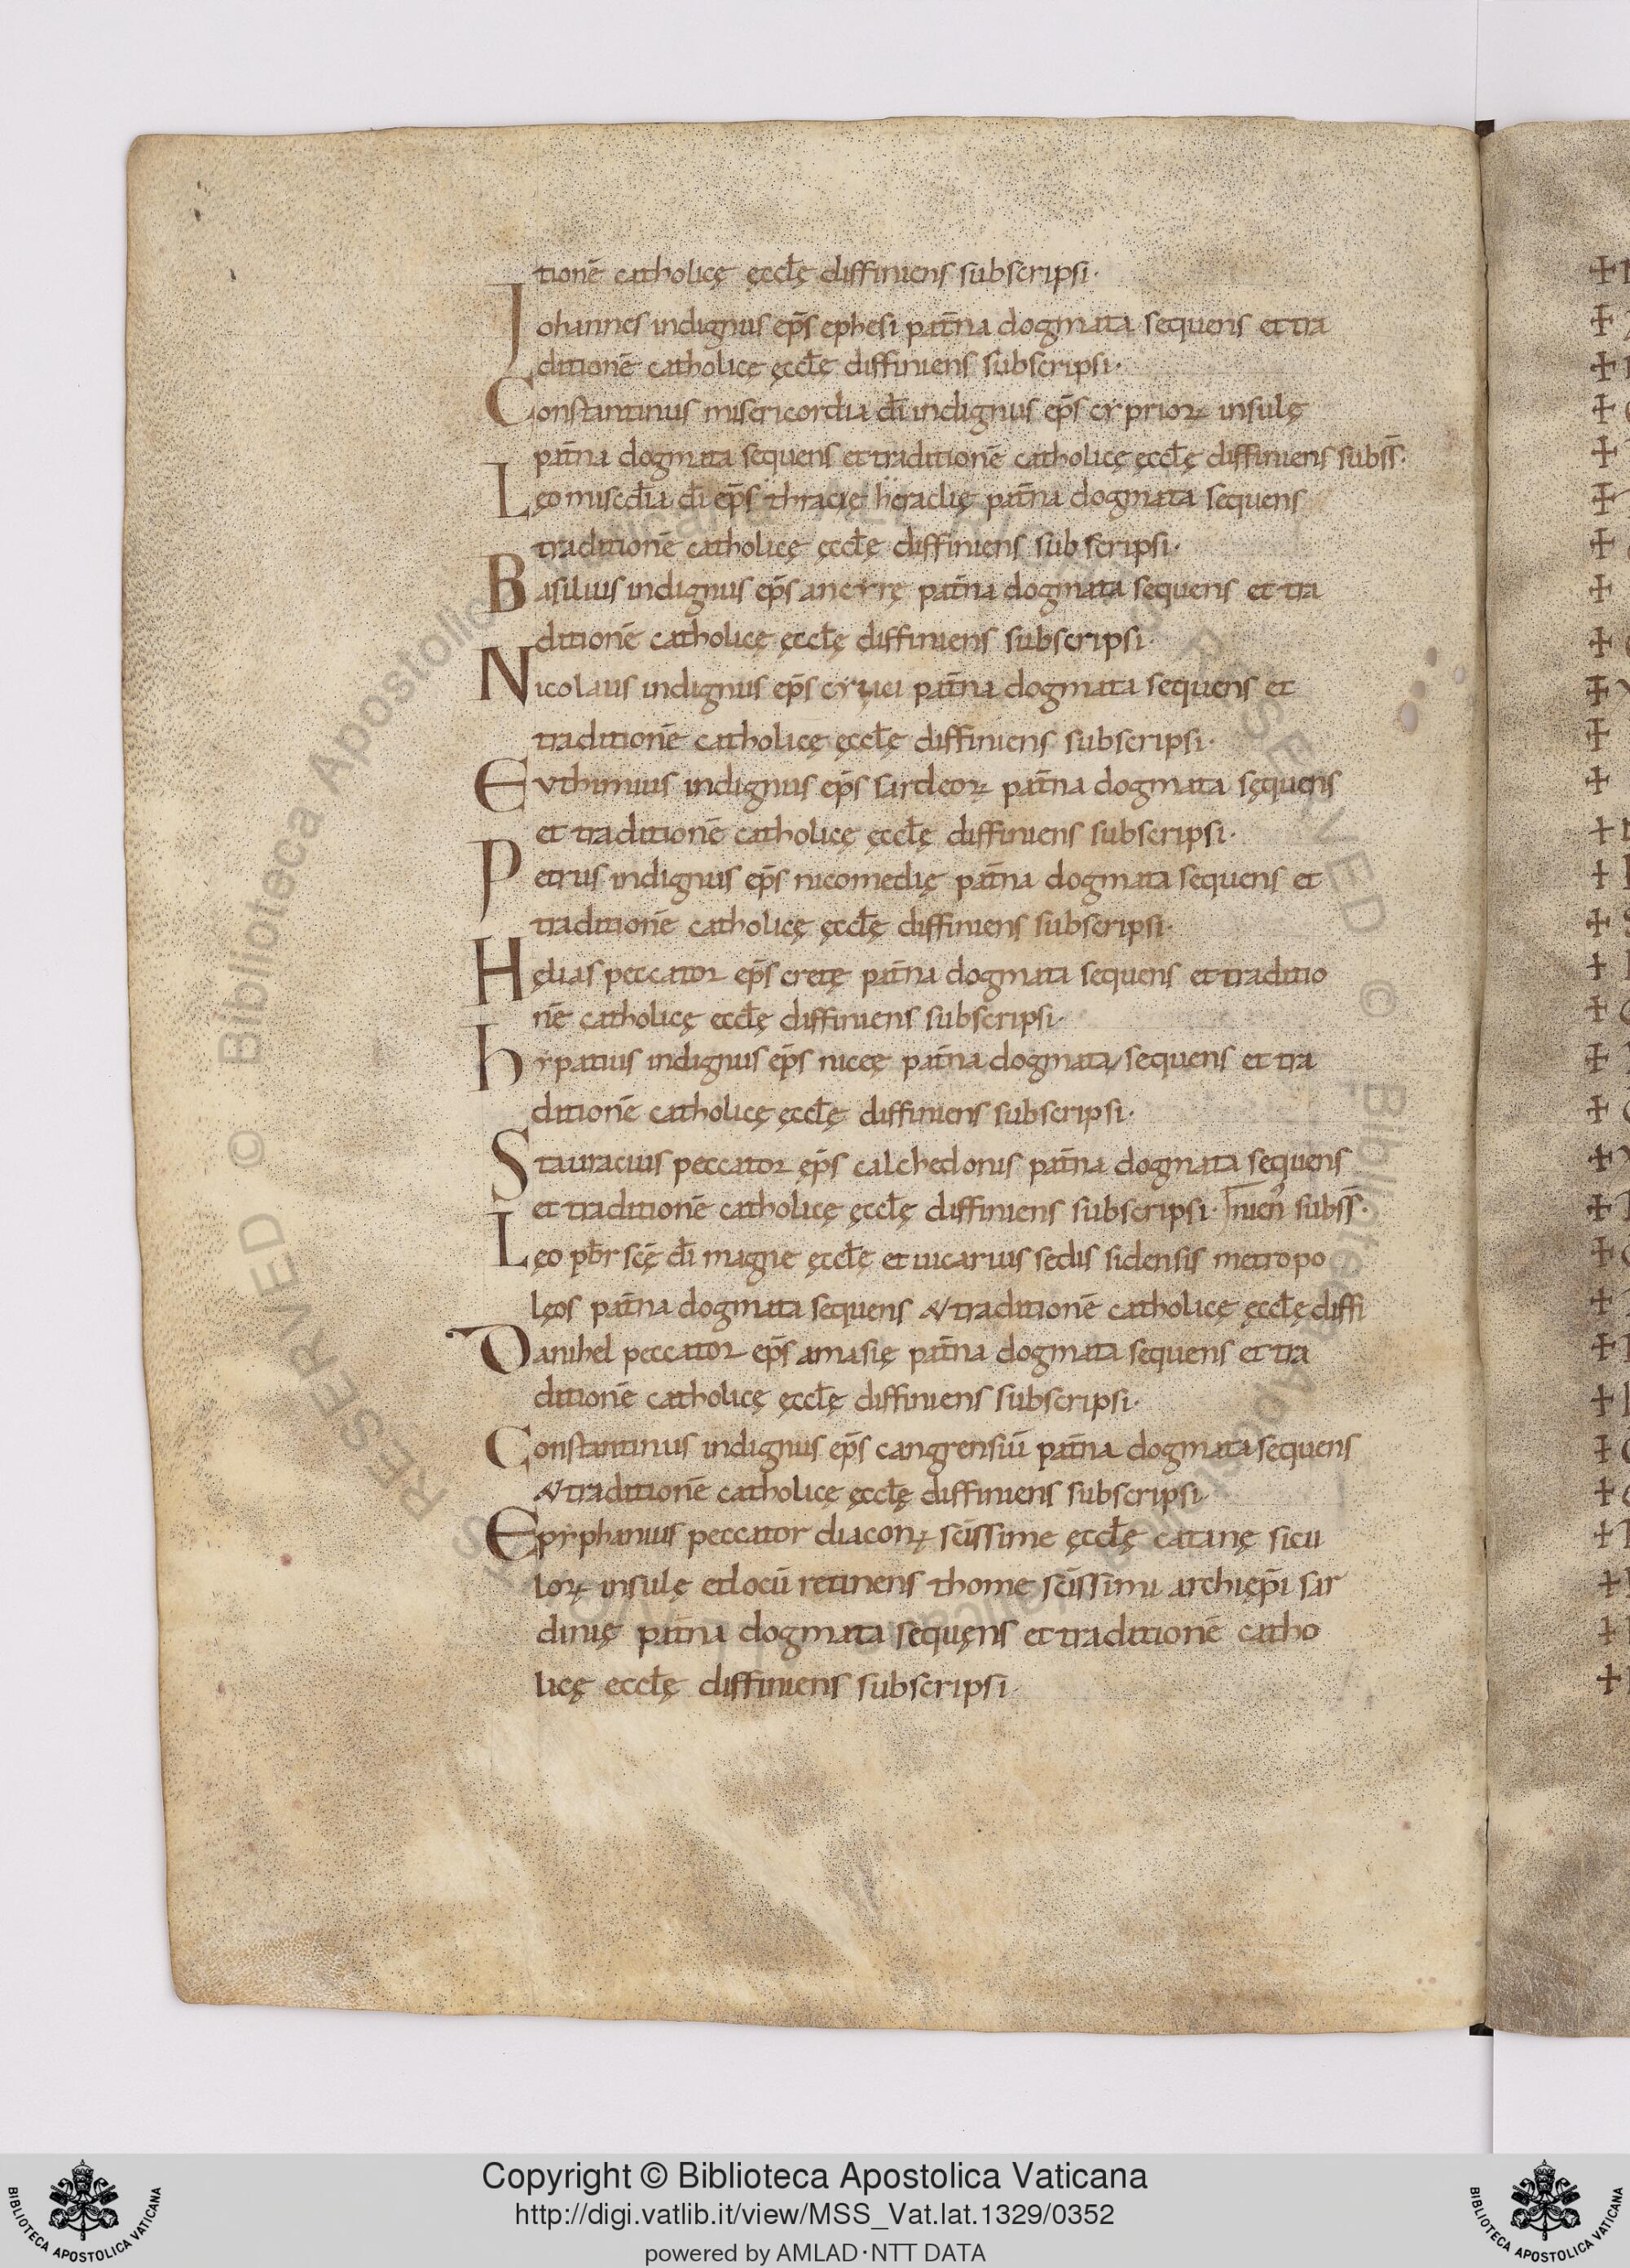 tionē catholicę ęccłę diffiniens subscripsi·
Iohannes indignus ep̄s ephesi pat̄na dogmata sequens et tra
ditionē catholicę ęccłę diffiniens subscripsi·
Constantinus misericordia dī indignus ep̄s cypriorꝝ insulę
pat̄na dogmata sequens et traditionē catholicę ęccłę diffiniens subss̄·
Lęo misc̄dia dī ep̄s thracię heraclię pat̄na dogmata sequens
traditionē catholicę ęccłę diffiniens subscripsi·
Basilius indignus ep̄s ancyrę pat̄na dogmata sequens et tra
ditionē catholicę ęccłę diffiniens subscripsi·
Nicolaus indignus ep̄s pat̄na dogmata sequens et
traditionē catholicę ęccłę diffiniens subscripsi·
Euthimius indignus ep̄s sardeorꝝ pat̄na dogmata sęquens
et traditionē catholicę ęccłę diffiniens subscripsi·
Petrus indignus ep̄s nicomedię pat̄na dogmata sequens et
traditionē catholicę ęccłę diffiniens subscripsi·
Hęlias peccator ep̄s cretę pat̄na dogmata sequens et traditio
nē catholicę eccłę diffiniens subscripsi·
hypatius indignus ep̄s nicęę pat̄na dogmata sequens et tra
ditionē catholicę ęccłę diffiniens subscripsi·
Stauracius peccator ęp̄s calchedonis pat̄na dogmata sequens
et traditionē catholicę ęccłę diffiniens subscripsi· nien᷒ subss̄·
Lęo pb̄r scę̄ dī magne ęccłę et uicarius sedis sidensis metropo
lęos pat̄na dogmata sequens & traditionē catholicę ęccłę diffi
Danihel peccator ep̄s amasię pat̄na dogmata sequens et tra
ditionē catholicę ęccłę diffiniens subscripsi·
Constantinus indignus ep̄s cangrensiū pat̄na dogmata sequens
& traditionē catholicę ęccłę diffiniens subscripsi
Epyphanius peccator diaconꝝ scīssime ęccłę catanę sicu
lorꝝ insulę et locū retinens thome scīssimi archięp̄i sar
dinię pat̄na dogmata sequęns et traditionē catho
licę eccłę diffiniens subscripsi
Copyright © Biblioteca Apostolica Vaticana
http://digi.vatlib.it/view/MSS_Vat.lat.1329/0352
powered by AMLAD·NTT DATA
BIBLIOTECA APOSTOLICA VATICANA
BIBLIOTECA APOSTOLICA VATICANA